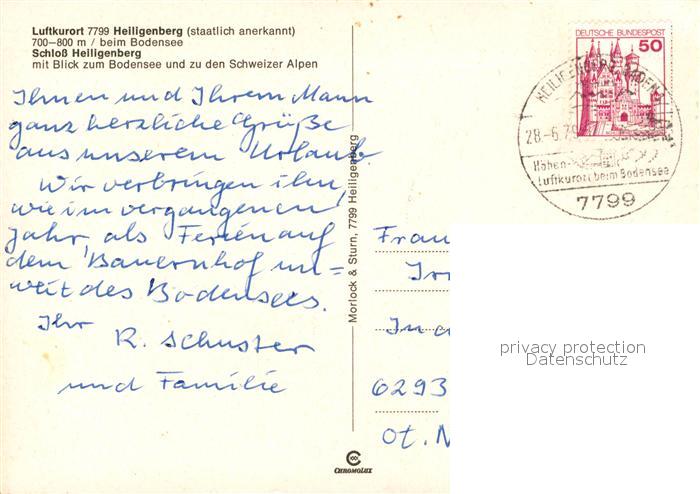 Luftkurort 7799 Heiligenberg (staatlich anerkannt)
700-800 m / beim Bodensee
Schloß Heiligenberg
mit Blick zum Bodensee und zu den Schweizer Alpen
Ihnen und Ihrem Mann
ganz herzliche Grüße
aus unserem Urlaub.
Wir verbringen ihn,
wie im vergangenen
Jahr, als Ferien auf
dem Bauernhof un=
weit des Bodensees.
Ihr
R. Schuster
und Familie
Morlock & Sturn, 7799 Heiligenberg
CHROMOLUX
DEUTSCHE BUNDESPOST
50
28.-6.79
Höhen-
Luftkurort beim Bodensee
7799
Frau
6293
Ot.
privacy protection
Datenschutz